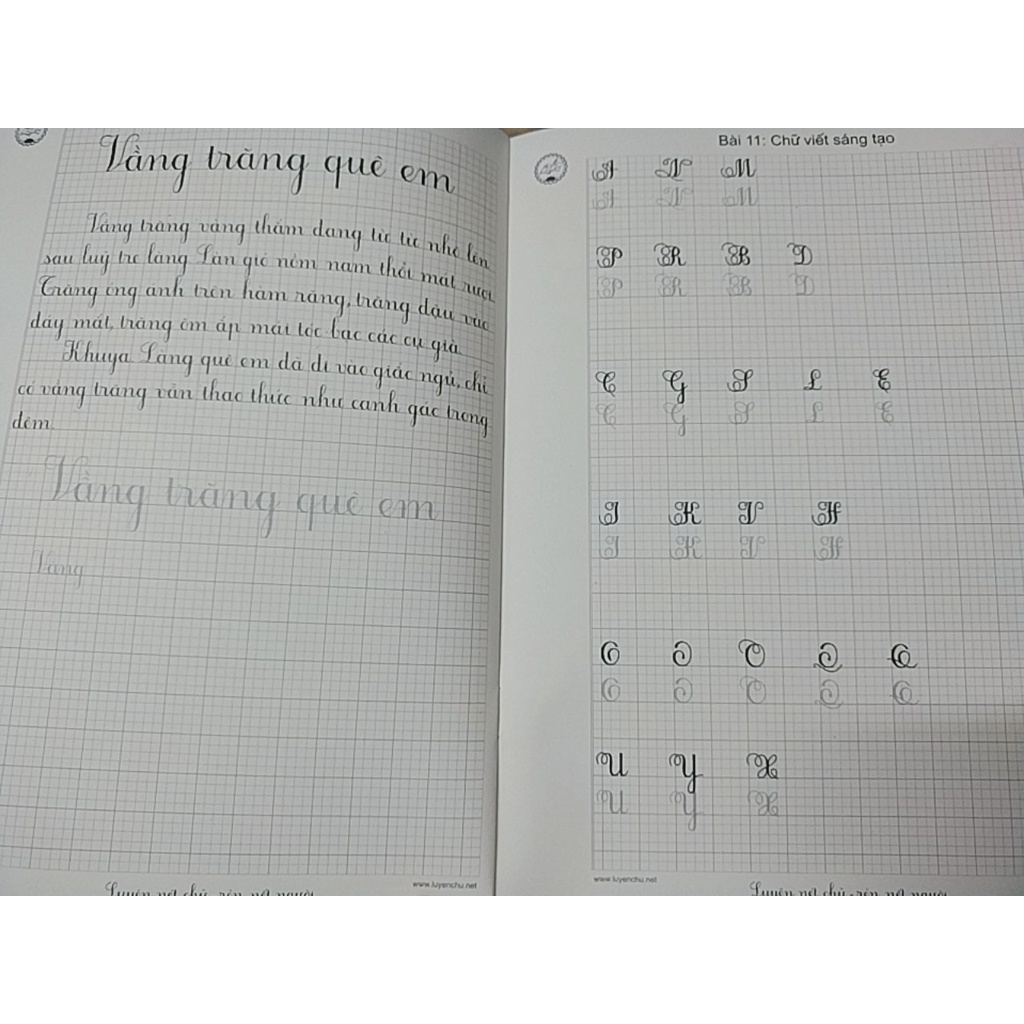 Vầng trăng quê em
Vầng trăng vàng thẳm đang từ từ nhô lên
sau luỹ tre làng Làn gió nồm nam thổi mát rượi
Trăng óng ánh trên hàm răng, trăng đậu vào
đáy mắt, trăng ôm ấp mái tóc bạc các cụ già
Khuya Làng quê em đã đi vào giấc ngủ, chỉ
có vầng trăng vẫn thao thức như canh gác trong
đêm
Vầng trăng quê em
Vầng
www.luyenchu.net
Luyện nét chữ - rèn nết người
Bài 11: Chữ viết sáng tạo
A N M
A N M
P R B D
P R B D
C G S L E
C G S L E
I K V H
I K V H
O O O Q Q
O O O Q Q
U Y X
U Y X
www.luyenchu.net
Luyện nét chữ - rèn nết người